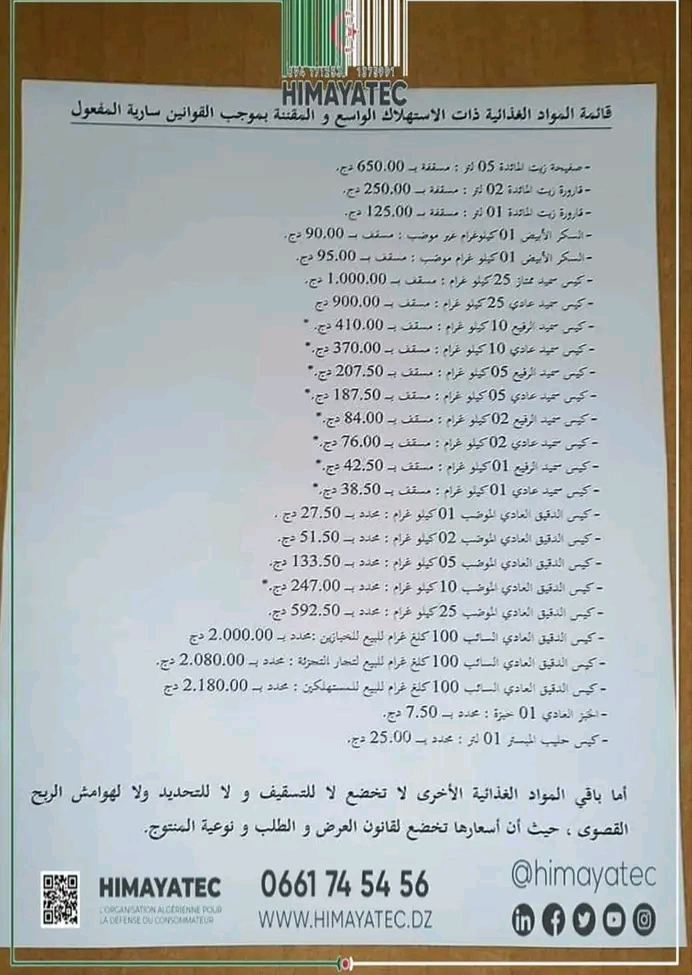 HIMAYATEC
قائمة المواد الغذائية ذات الاستهلاك الواسع و المقننة بموجب القوانين سارية المفعول
- صفيحة زيت المائدة 05 لتر : مسقفة بـ 650.00 دج.
- قارورة زيت المائدة 02 لتر : مسقفة بـ 250.00 دج.
- قارورة زيت المائدة 01 لتر : مسقفة بـ 125.00 دج.
- السكر الأبيض 01 كيلوغرام غير موضب : مسقف بـ 90.00 دج.
- السكر الأبيض 01 كيلو غرام موضب : مسقف بـ 95.00 دج.
- كيس سميد ممتاز 25 كيلو غرام : مسقف بـ 1.000.00 دج.
- كيس سميد عادي 25 كيلو غرام : مسقف بـ 900.00 دج
- كيس سميد الرفيع 10 كيلو غرام : مسقف بـ 410.00 دج. *
- كيس سميد عادي 10 كيلو غرام : مسقف بـ 370.00 دج.*
- كيس سميد الرفيع 05 كيلو غرام : مسقف بـ 207.50 دج.*
- كيس سميد عادي 05 كيلو غرام : مسقف بـ 187.50 دج.*
- كيس سميد الرفيع 02 كيلو غرام : مسقف بـ 84.00 دج.*
- كيس سميد عادي 02 كيلو غرام : مسقف بـ 76.00 دج.*
- كيس سميد الرفيع 01 كيلو غرام : مسقف بـ 42.50 دج.*
- كيس سميد عادي 01 كيلو غرام : مسقف بـ 38.50 دج.*
- كيس الدقيق العادي الموضب 01 كيلو غرام : محدد بـ 27.50 دج .
- كيس الدقيق العادي الموضب 02 كيلو غرام : محدد بـ 51.50 دج.
- كيس الدقيق العادي الموضب 05 كيلو غرام : محدد بـ 133.50 دج.
- كيس الدقيق العادي الموضب 10 كيلو غرام : محدد بـ 247.00 دج.*
- كيس الدقيق العادي الموضب 25 كيلو غرام : محدد بـ 592.50 دج.
- كيس الدقيق العادي السائب 100 كلغ غرام للبيع للخبازين :محدد بـ 2.000.00 دج
- كيس الدقيق العادي السائب 100 كلغ غرام للبيع لتجار التجزئة : محدد بـ 2.080.00 دج.
- كيس الدقيق العادي السائب 100 كلغ غرام للبيع للمستهلكين : محدد بـ 2.180.00 دج
- الخبز العادي 01 خبزة : محدد بـ 7.50 دج.
- كيس حليب المبستر 01 لتر : محدد بـ 25.00 دج.
أما باقي المواد الغذائية الأخرى لا تخضع لا للتسقيف و لا للتحديد ولا لهوامش الربح
القصوى ، حيث أن أسعارها تخضع لقانون العرض و الطلب و نوعية المنتوج.
@himayatec
HIMAYATEC
L'ORGANISATION ALGÉRIENNE POUR
LA DÉFENSE DU CONSOMMATEUR
0661 74 54 56
WWW.HIMAYATEC.DZ